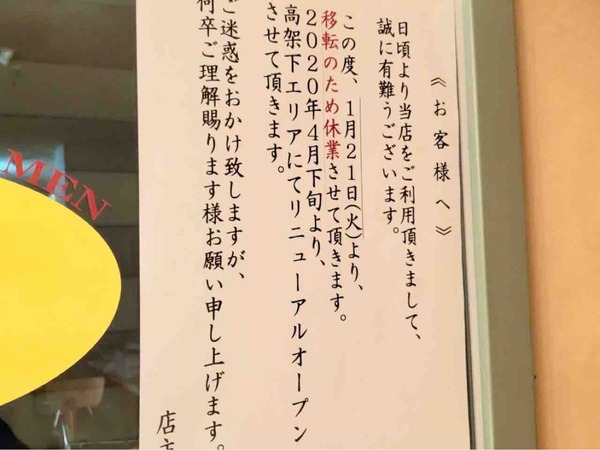 《お客様へ》
日頃より当店をご利用頂きまして、
誠に有難うございます。
この度、1月21日(火)より、
移転のため休業させて頂きます。
2020年4月下旬より、
高架下エリアにてリニューアルオープン
させて頂きます。
ご迷惑をおかけ致しますが、
何卒ご理解賜ります様お願い申し上げます。
店
MEN